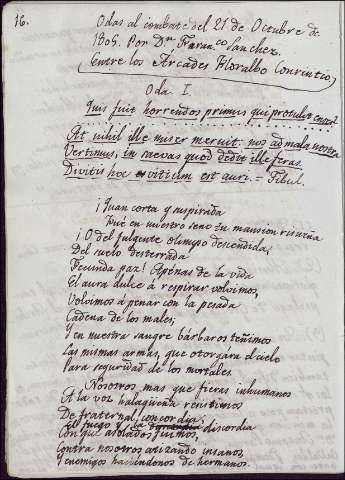 16.
Odas al combate del 21 de Octubre de
1805. Por Dn Fran.co Sanchez.
entre los Arcades Floralbo Corintio
Oda I.
Quis fuit horrendos primus qui protulit enses?
At nihil ille miser meruit: nos ad mala nostra
Vertimus, in saevas quod dedit ille feras.
Divitis hoc vitium est auri. = Tibul.
¡Quan corta y suspirada
Fué en nuestro seno tu mansion risueña
¡O del fulgente olimpo descendida,
Del suelo desterrada
Fecunda paz! Apénas de la vida
El aura dulce á respirar volvimos,
Volvimos á penar con la pesada
Cadena de los males;
Y en nuestra sangre bárbaros teñimos
Las mismas armas, que otorgara el cielo
Para seguridad de los mortales.
Nosotros mas que fieras inhumanos
A la voz halagüeña resistimos
De fraternal concordia;
El fuego y la discordia
Con que asolados fuimos,
Contra nosotros atizando insanos,
Y enemigos haciéndonos de hermanos.